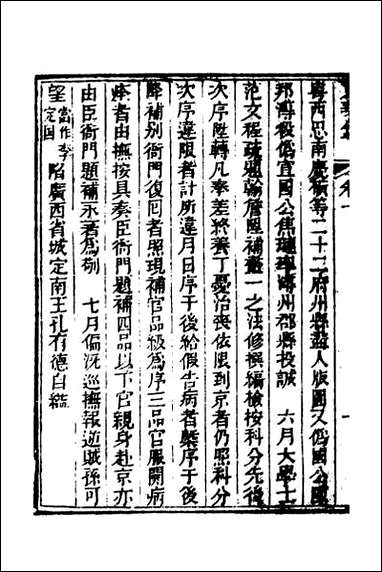 粤西思南慶橫等二十二府州縣盡入版圖又僞國公
邦溥投僞宜國公焦璉率潯州郡縣投誠　六月大學士
范文程疏通翰詹陞補畫一之法修撰編檢按科分先後
次序陞轉凡奉差終養丁憂治喪依限到京者仍照科分
次序違限者計所違月日序于後給假告病者槩序于後
降補別衙門復回者照現補官品級爲序三品官服闋病
痊者由撫按具奏臣衙門題補四品以下官親身赴京亦
由臣衙門題補永著爲例　七月偏沅巡撫報逆賊孫可
望當作李定國陷廣西省城定南王孔有德自縊